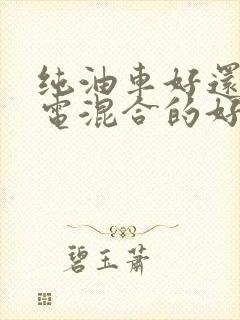 纯油車好還
電混合的好
碧玉蕭